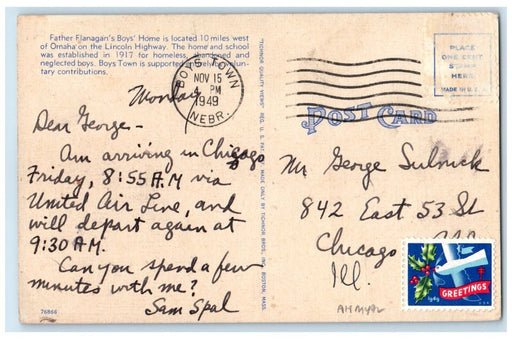 Father Flanagan's Boys' Home is located 10 miles west
of Omaha on the Lincoln Highway. The home and school
was established in 1917 for homeless, abandoned and
neglected boys. Boys Town is supported entirely by volun-
tary contributions.
BOYS TOWN
NOV 15
PM
1949
NEBR.
PLACE
ONE CENT
STAMP
HERE
MADE IN U.S.A.
POST CARD
Monday
Dear George-
Am arriving in Chicago
Friday, 8:55 A.M via
United Air Line, and
will depart again at
9:30 AM.
Can you spend a few
minutes with me?
Sam Spal
76866
TICHNOR QUALITY VIEWS REG. U. S. PAT. MADE ONLY BY TICHNOR BROS. INC., BOSTON, MASS.
Mr George Sulnick
842 East 53 St
Chicago
Ill.
1949
GREETINGS
USA